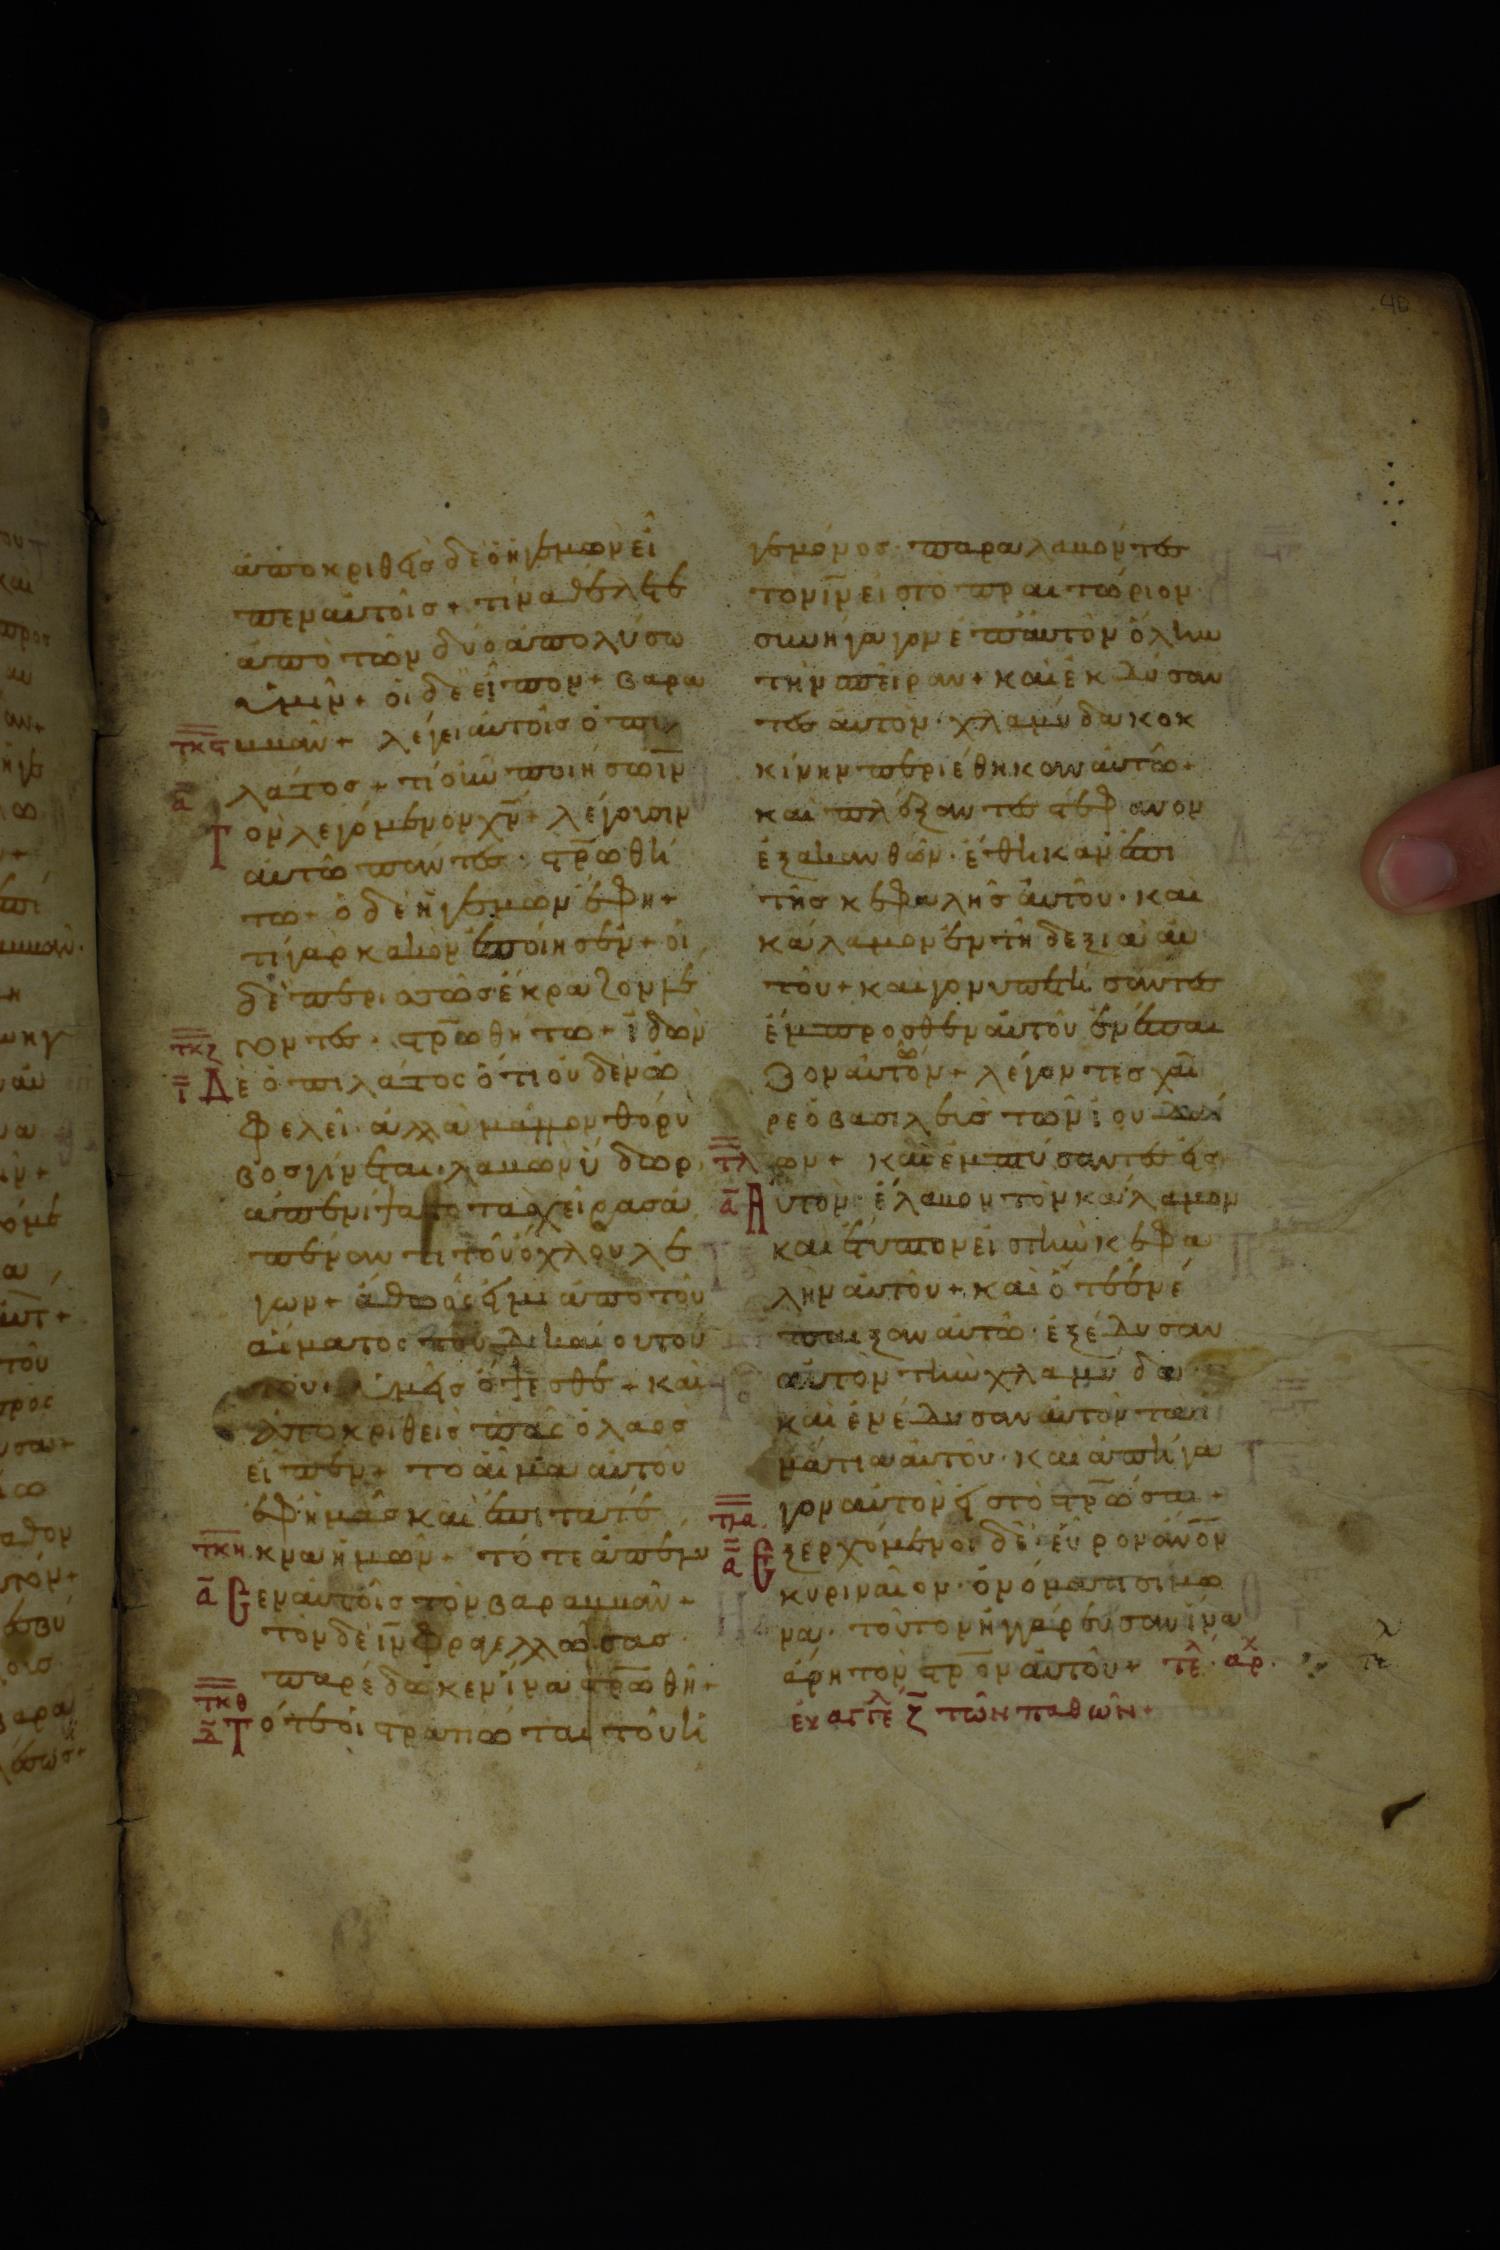 ἀποκριθεὶς δὲ ὁ ἡγεμὼν εἶ
πεν αὐτοῖς + τίνα θέλετε
ἀπὸ τῶν δύο ἀπολύσω
ὑμῖν + οἱ δὲ εἶπον + βαρα
τκϛ ββᾶν + λέγει αὐτοῖς ὁ πι
λάτος + τί οὖν ποιήσω ιν̅
α̅ Τὸν λεγόμενον χν̅ + λέγουσιν
αὐτῶ πάντες · στρ̅ωθή
τω + ὁ δὲ ἡγεμὼν ἔφη +
τί γὰρ κακὸν ἐποίησεν + οἱ
δὲ περισσῶς ἔκραζον λέ
γοντες · στρ̅ωθήτω + ἰδὼν
τκζ
ι̅ Δὲ ὁ πιλάτος ὅτι οὐδὲν ὠ
φελεῖ · ἀλλὰ μᾶλλον θόρυ
βος γίνεται · λαβὼν ὕδωρ
ἀπενίψατο τὰς χεῖρας ἀ
πέναντι τοῦ ὄχλου λέ
γων + ἀθῶός εἰμι ἀπὸ τοῦ
αἵματος τοῦ δικαίου τού
του · ὑμεῖς ὄψεσθε + καὶ
ἀποκριθεὶς πᾶς ὁ λαὸς
εἶπεν + τὸ αἷμα αὐτοῦ
ἐφ ἡμᾶς καὶ ἐπὶ τὰ τέ
τκη κνα ἡμῶν + τότε ἀπέλυ
α̅ Σεν αὐτοῖς τὸν βαραββᾶν +
τὸν δὲ ιν̅ φραγελλώσας
παρέδωκεν ἵνα στρ̅ωθῆ +
τκθ
δ̅ Τότε οἱ στρατιῶται τοῦ ἡ
γεμόνος · παραλαβόντες
τὸν ιν̅ εἰς τὸ πραιτώριον
συνήγαγον ἐπ αὐτὸν ὅλην
τὴν σπεῖραν + καὶ ἐκδύσαν
τες αὐτὸν · χλαμύδα κοκ
κίνην περιέθηκαν αὐτῶ +
καὶ πλέξαντες στέφανον
ἐξ ἀκανθῶν · ἔθηκαν ἐπὶ
τῆς κεφαλῆς αὐτοῦ · καὶ
κάλαμον ἐν τῆ δεξιᾶ αὐ
τοῦ + καὶ γονυπετήσαντες
ἔμπροσθεν αὐτοῦ ἐνέπαι
ζον αὐτῶ + λέγοντες χαῖ
ρε ὁ βασιλεὺς τῶν ἰουδαί
τλ ων + καὶ ἐμπτύσαντες εἰς
α̅ Αὐτὸν · ἔλαβον τὸν κάλαμον
καὶ ἔτυπτον εἰς τὴν κεφα
λὴν αὐτοῦ + καὶ ὅτε ἐνέ
παιξαν αὐτῶ · ἐξέδυσαν
αὐτὸν τὴν χλαμύδα ·
καὶ ἐνέδυσαν αὐτὸν τὰ ἱ
μάτια αὐτοῦ · καὶ ἀπήγα
γον αὐτὸν εἰς τὸ στρ̅ῶσαι +
τλα
α̅ Ἐξερχόμενοι δὲ · εὗρον ἄνον̅
κυριναῖον · ὀνόματι σίμω
να · τοῦτον ἠγγάρευσαν ἵνα
ἄρη τὸν στρ̅ὸν αὐτοῦ + τελ · αρχ ·
εὐαγγελ ζ̅ τῶν παθῶν +